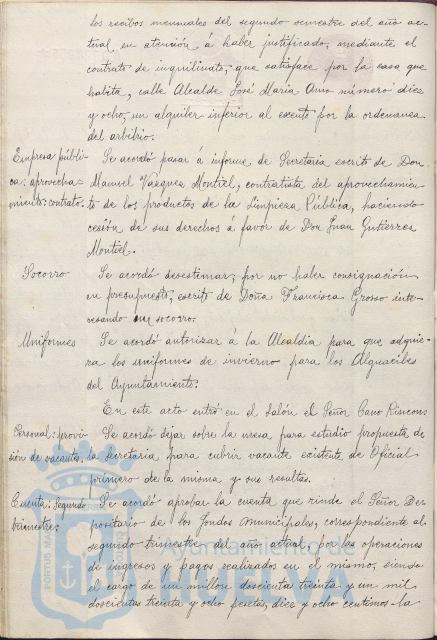 los recibos mensuales del segundo semestre del año ac-
tual, en atención á haber justificado, mediante el
contrato de inquilinato, que satisface por la casa que
habita, calle Alcalde José María número diez
y ocho, un alquiler inferior al exento por la ordenanza
del arbitrio.
Empresa públi- Se acordó pasar á informe de Secretaría escrito de Don
ca: aprovecha= Manuel Vazquez Montiel, contratista del aprovechamien-
miento: contrato: to de los productos de la Limpieza Pública, haciendo
cesión de sus derechos á favor de Don Juan Gutierrez
Montiel.
Socorro Se acordó desestimar, por no haber consignación
en presupuesto, escrito de Doña Francisca Grosso inte-
resando socorro.
Uniformes Se acordó autorizar á la Alcaldía para que adquie-
ra los uniformes de invierno para los Alguaciles
del Ayuntamiento.
En este acto entró en el Salón el Señor Cano Rincón:
Personal: provi- Se acordó dejar sobre la mesa para estudio propuesta de
sión de vacantes. la Secretaría para cubrir vacante existente de Oficial
primero de la misma y sus resultas.
Cuenta: Segundo Se acordó aprobar la cuenta que rinde el Señor De-
trimestre: positario de los fondos municipales, correspondiente al
segundo trimestre del año actual, por las operaciones
de ingresos y pagos realizados en el mismo, siendo
el cargo de un millón doscienta treinta y un mil
doscientas treinta y ocho pesetas, diez y ocho centimos la
Ayuntamiento de